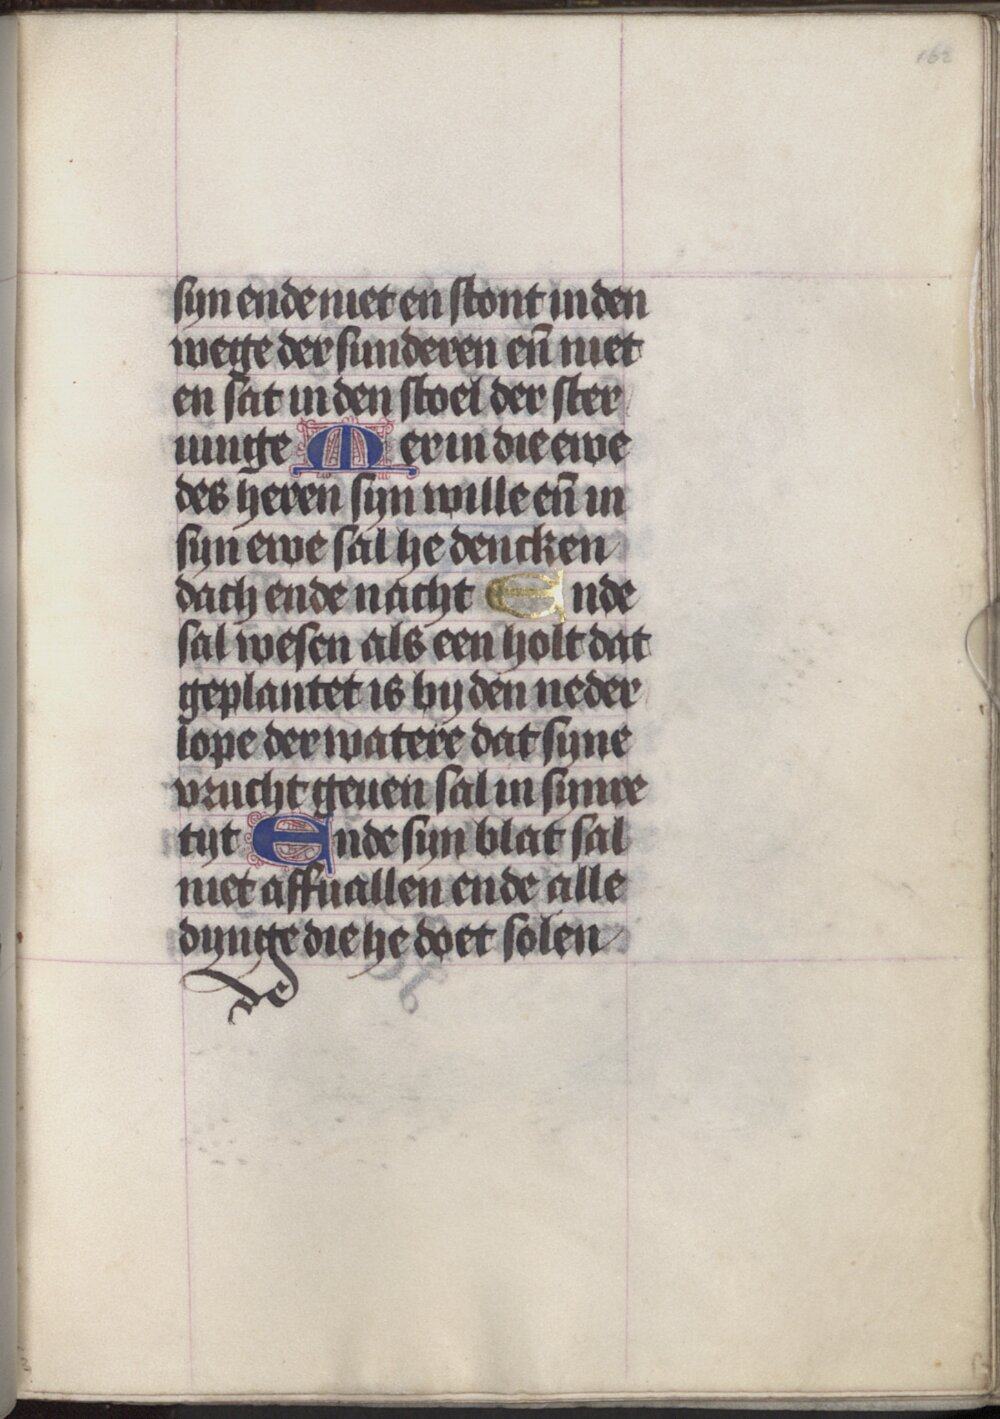 162
syn ende niet en stont in den
wege der sunderen en̄ niet
en sat in den stoel der ster
uinge Mer in die ewe
des heren syn wille en̄ in
syn ewe sal he dencken
dach ende nacht Ende
sal wesen als een holt dat
geplantet is by den neder
lope der watere dat syne
vrucht geuen sal in synre
tyt Ende syn blat sal
niet affuallen ende alle
dynge die he doet solen